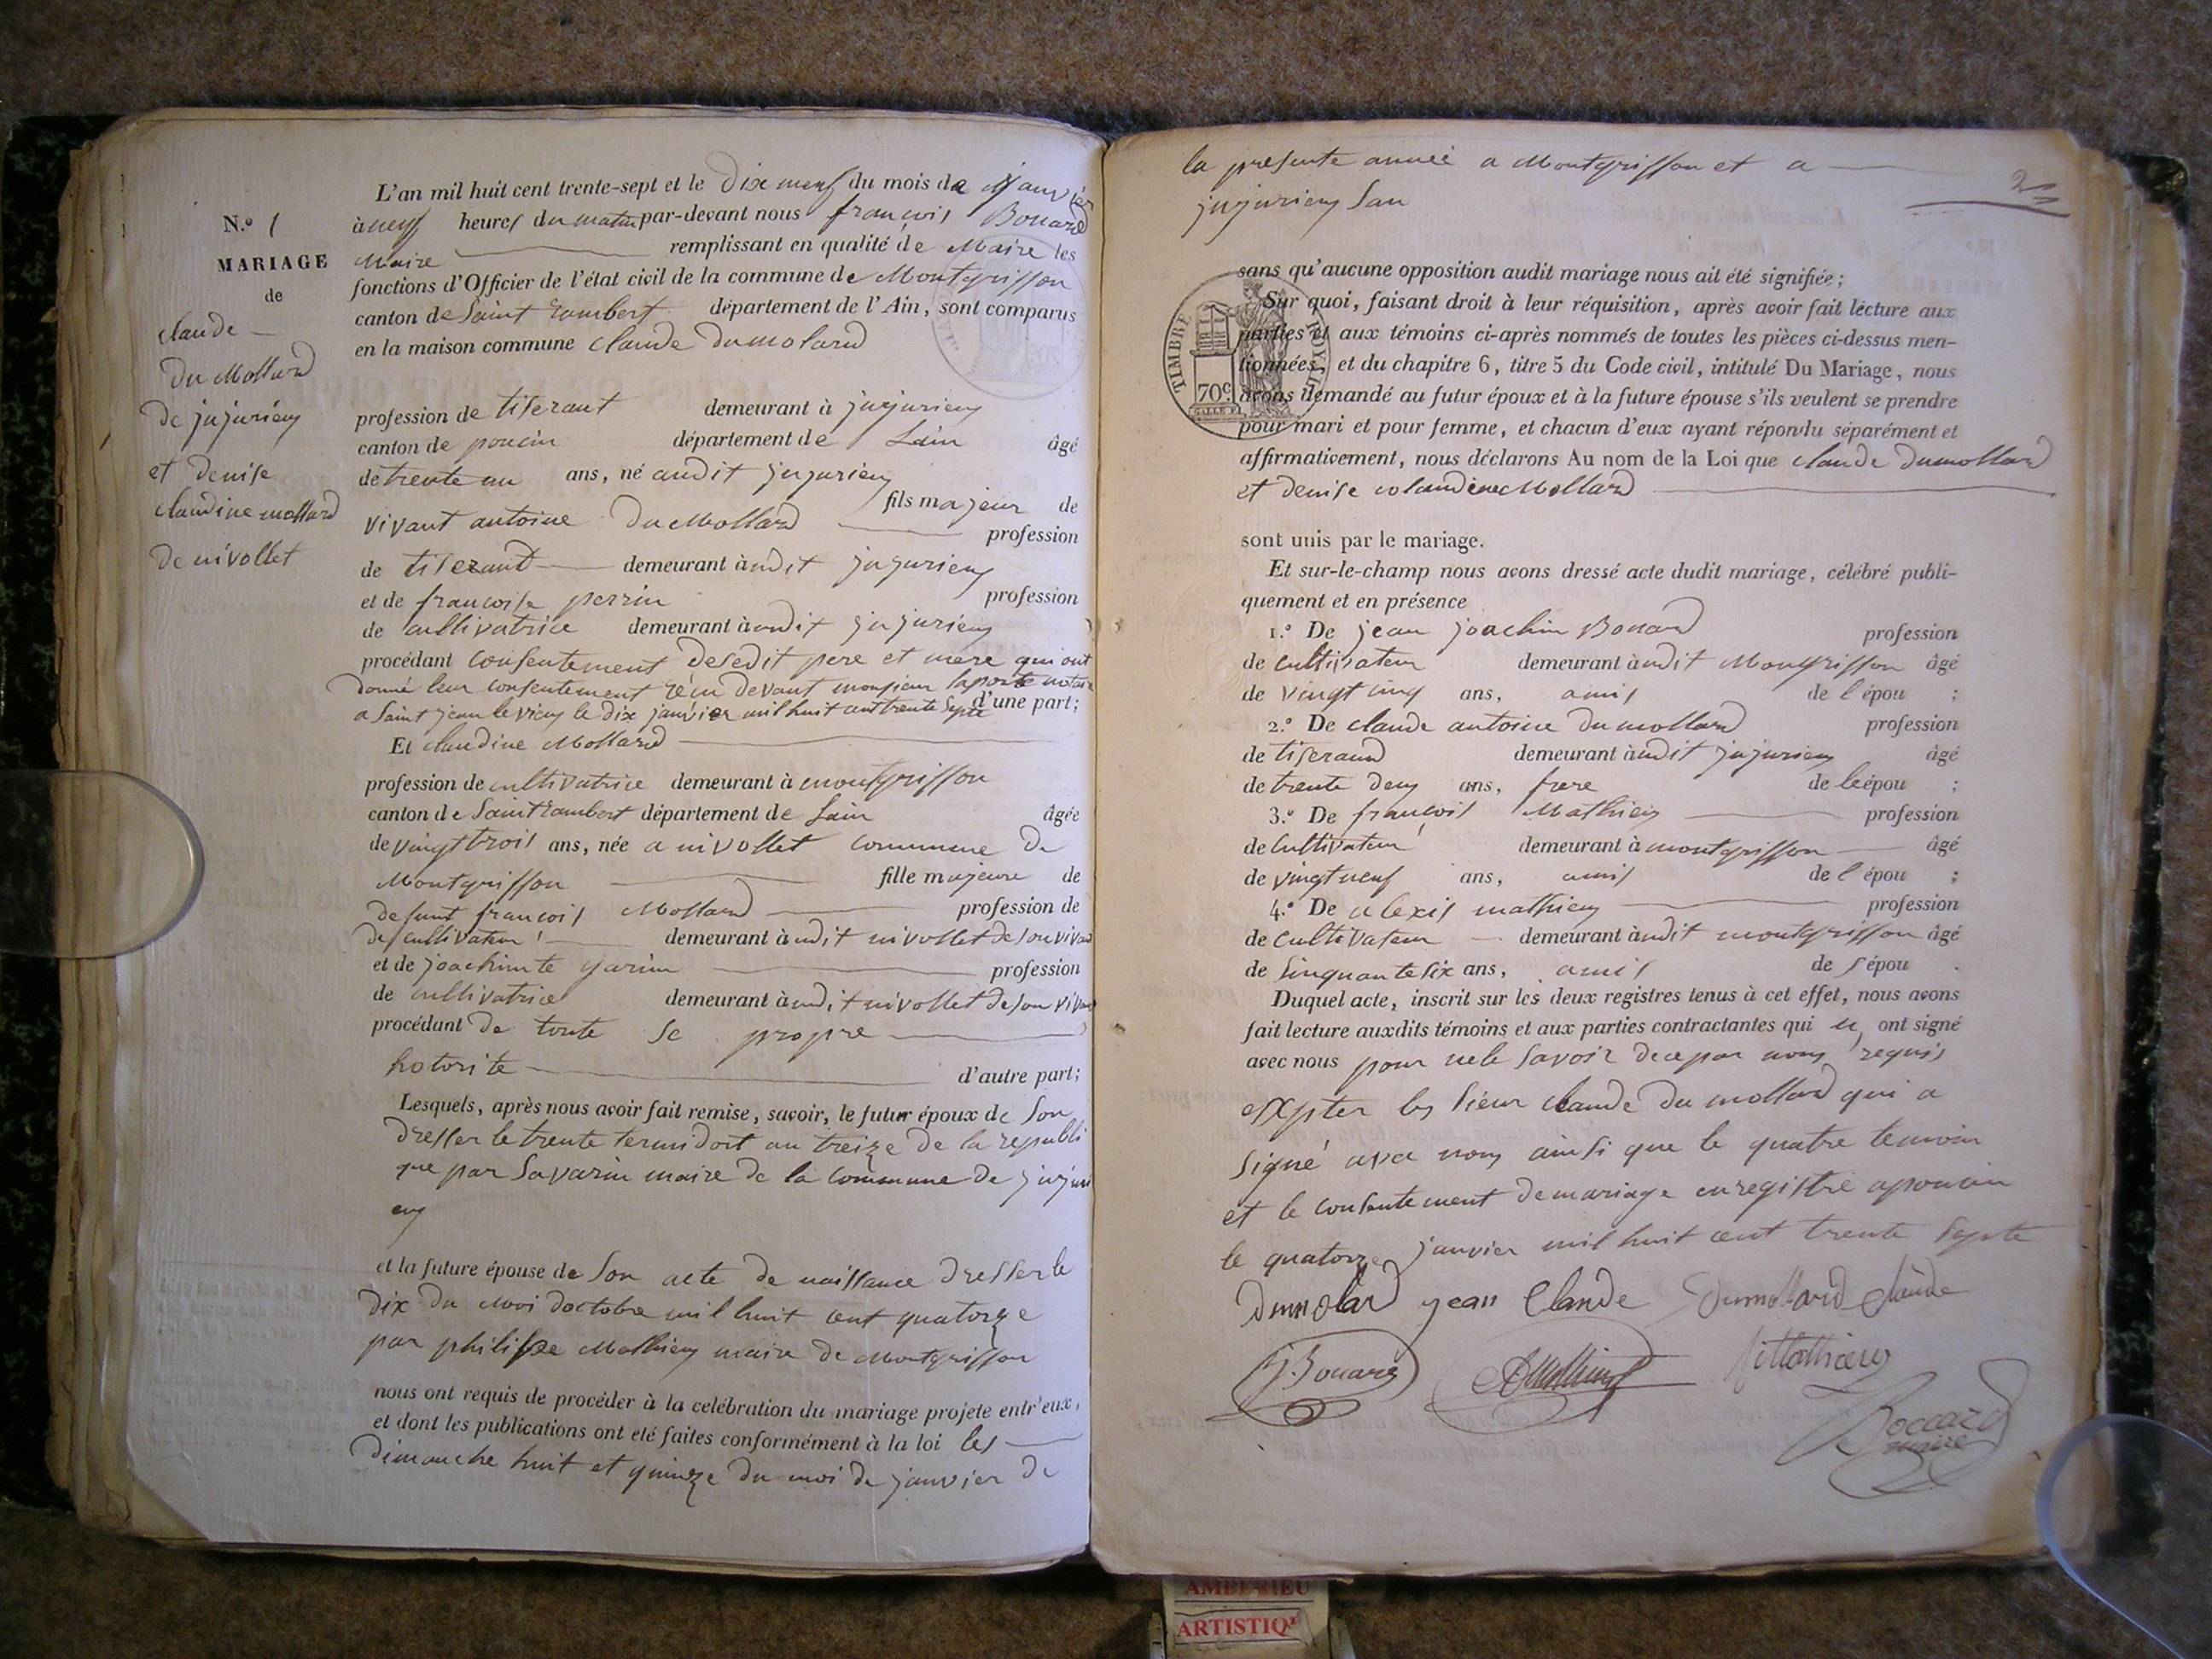 N.º 1
MARIAGE
de
claude
Du Mollard
de jujurieuy
et denise
claudine mollard
de nivollet
L'an mil huit cent trente-sept et le Dix neuf du mois de Janvier
à neuf heures du matin par-devant nous francois Bouard
Maire remplissant en qualité de Maire les
fonctions d'Officier de l'état civil de la commune de Montgriffon
canton de Saint rambert département de l'Ain, sont comparus
en la maison commune claude Dumolard
profession de tiserant demeurant à jujurieuy
canton de poncin département de Lain âgé
de trente un ans, né audit jujurieuy
fils majeur de
vivant antoine Du Mollard profession
de tiserant demeurant à udit jujurieuy
et de francoise perrin profession
de cultivatrice demeurant à udit jujurieuy
procédant consentement desedit pere et mere qui ont
donné leur consentement réçu devant monsieur laporte notaire
a Saint jean le vieuy le dix janvier mil huit cent trente septe d'une part;
Et claudine Mollard
profession de cultivatrice demeurant à montgriffon
canton de Saint rambert département de Lain âgée
de vingt trois ans, née a nivollet commune de
Montgriffon fille majeure de
defunt francois Mollard profession de
de cultivateur demeurant à udit nivollet de son vivant
et de joachimte garin profession
de cultivatrice demeurant à udit nivollet de son vivant
procédant de toute se propre
hotorite d'autre part;
Lesquels, après nous avoir fait remise, savoir, le futur époux de son
dresser le trente termidort an treize de la republi
que par Savarin maire de la commune de jujuri
euy
et la future épouse de son acte de naissance dresser le
dix du moi doctobre mil huit cent quatorze
par philippe Mathieuy maire de Montgriffon
nous ont requis de procéder à la celébration du mariage projete entr'eux,
et dont les publications ont eté faites conformément à la loi les
dimanche huit et quinze du moi de janvier de
la presente année a Montgriffon et a
jujurieuy San
2
sans qu'aucune opposition audit mariage nous ait été signifiée;
Sur quoi, faisant droit à leur réquisition, après avoir fait lecture aux
parties et aux témoins ci-après nommés de toutes les pièces ci-dessus men-
tionnées, et du chapitre 6, titre 5 du Code civil, intitulé Du Mariage, nous
avons demandé au futur époux et à la future épouse s'ils veulent se prendre
pour mari et pour femme, et chacun d'eux ayant répondu séparément et
affirmativement, nous déclarons Au nom de la Loi que claude dumollard
et denise claudine Mollard
TIMBRE ROYAL
70 c
sont unis par le mariage.
Et sur-le-champ nous avons dressé acte dudit mariage, célébré publi-
quement et en présence
1.º De jean joachim Bouard profession
de cultivateur demeurant à udit Montgriffon âgé
de vingt cinq ans, amis de l'épou ;
2.º De claude antoine dumollard profession
de tiseraud demeurant à udit jujurieuy âgé
de trente deuy ans, frere de leépou ;
3.º De francois Mathieuy profession
de cultivateur demeurant à montgriffon âgé
de vingt neuf ans, amis de l'épou ;
4.º De alexis mathieuy profession
de cultivateur demeurant à udit montgriffon âgé
de sinquante six ans, amis de l'épou .
Duquel acte, inscrit sur les deux registres tenus à cet effet, nous avons
fait lecture auxdits témoins et aux parties contractantes qui n ont signé
avec nous pour ne le savoir de ce par nous requis
exspter ly sieur claude du mollard qui a
signé avec nous ainsi que le quatre temoin
et le consentement de mariage enregistre a poncin
le quatorze janvier mil huit cent trente septe
Dumolard jean Claude Dumollard claude
J. Bouard AMathieu f. Mathieuy
Boccard
maire
AMBERIEU
ARTISTIQU